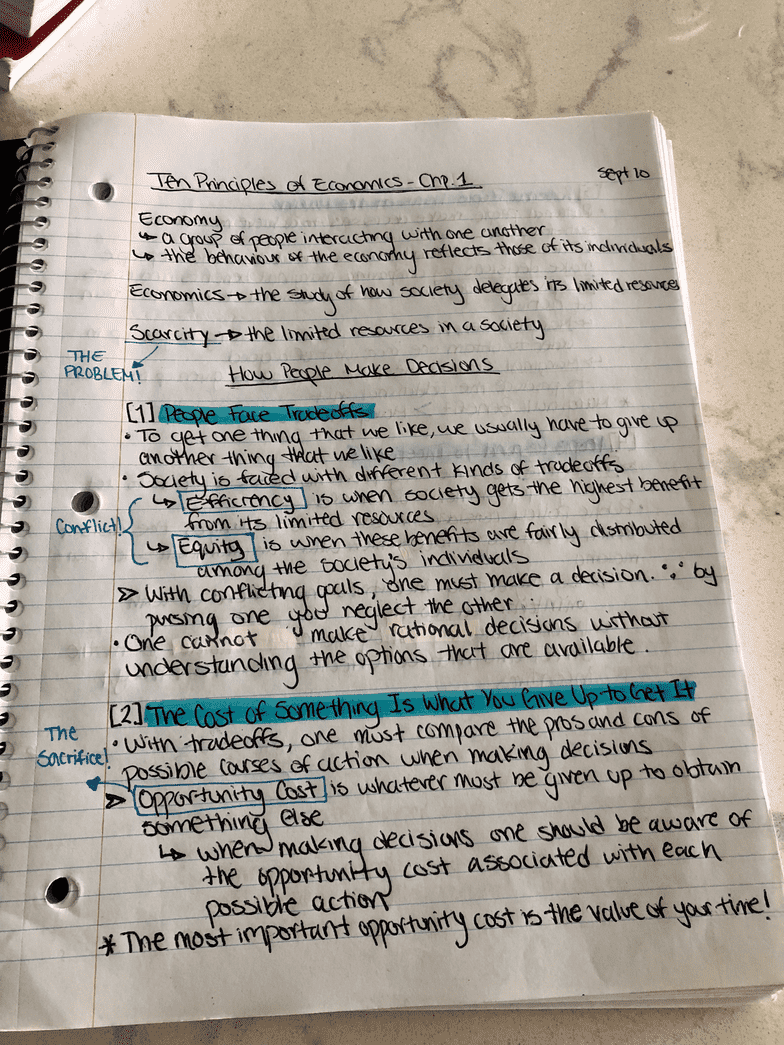 Ten Principles of Economics - Chp. 1
Sept 10
Economy
↳ a group of people interacting with one another
↳ the behaviour of the economy reflects those of its individuals
Economics → the study of how society delegates its limited resources
Scarcity → the limited resources in a society
THE
PROBLEM!
How People Make Decisions
[1] People Face Tradeoffs
• To get one thing that we like, we usually have to give up
another thing that we like
• Society is faced with different kinds of tradeoffs
↳ Efficiency is when society gets the highest benefit
from its limited resources
Conflict!
↳ Equity is when these benefits are fairly distributed
among the society's individuals
➢ With conflicting goals, one must make a decision. ∵ by
pursing one you neglect the other
• One cannot make rational decisions without
understanding the options that are available.
[2] The Cost of Something Is What You Give Up to Get It
The
Sacrifice!
• With tradeoffs, one must compare the pros and cons of
possible courses of action when making decisions
➢ Opportunity Cost is whatever must be given up to obtain
something else
↳ when making decisions one should be aware of
the opportunity cost associated with each
possible action
* The most important opportunity cost is the value of your time!